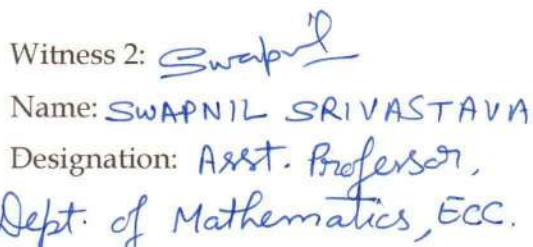 Witness 2: Swapnil
Name: SWAPNIL SRIVASTAVA
Designation: Asst. Professor,
Dept. of Mathematics, ECC.